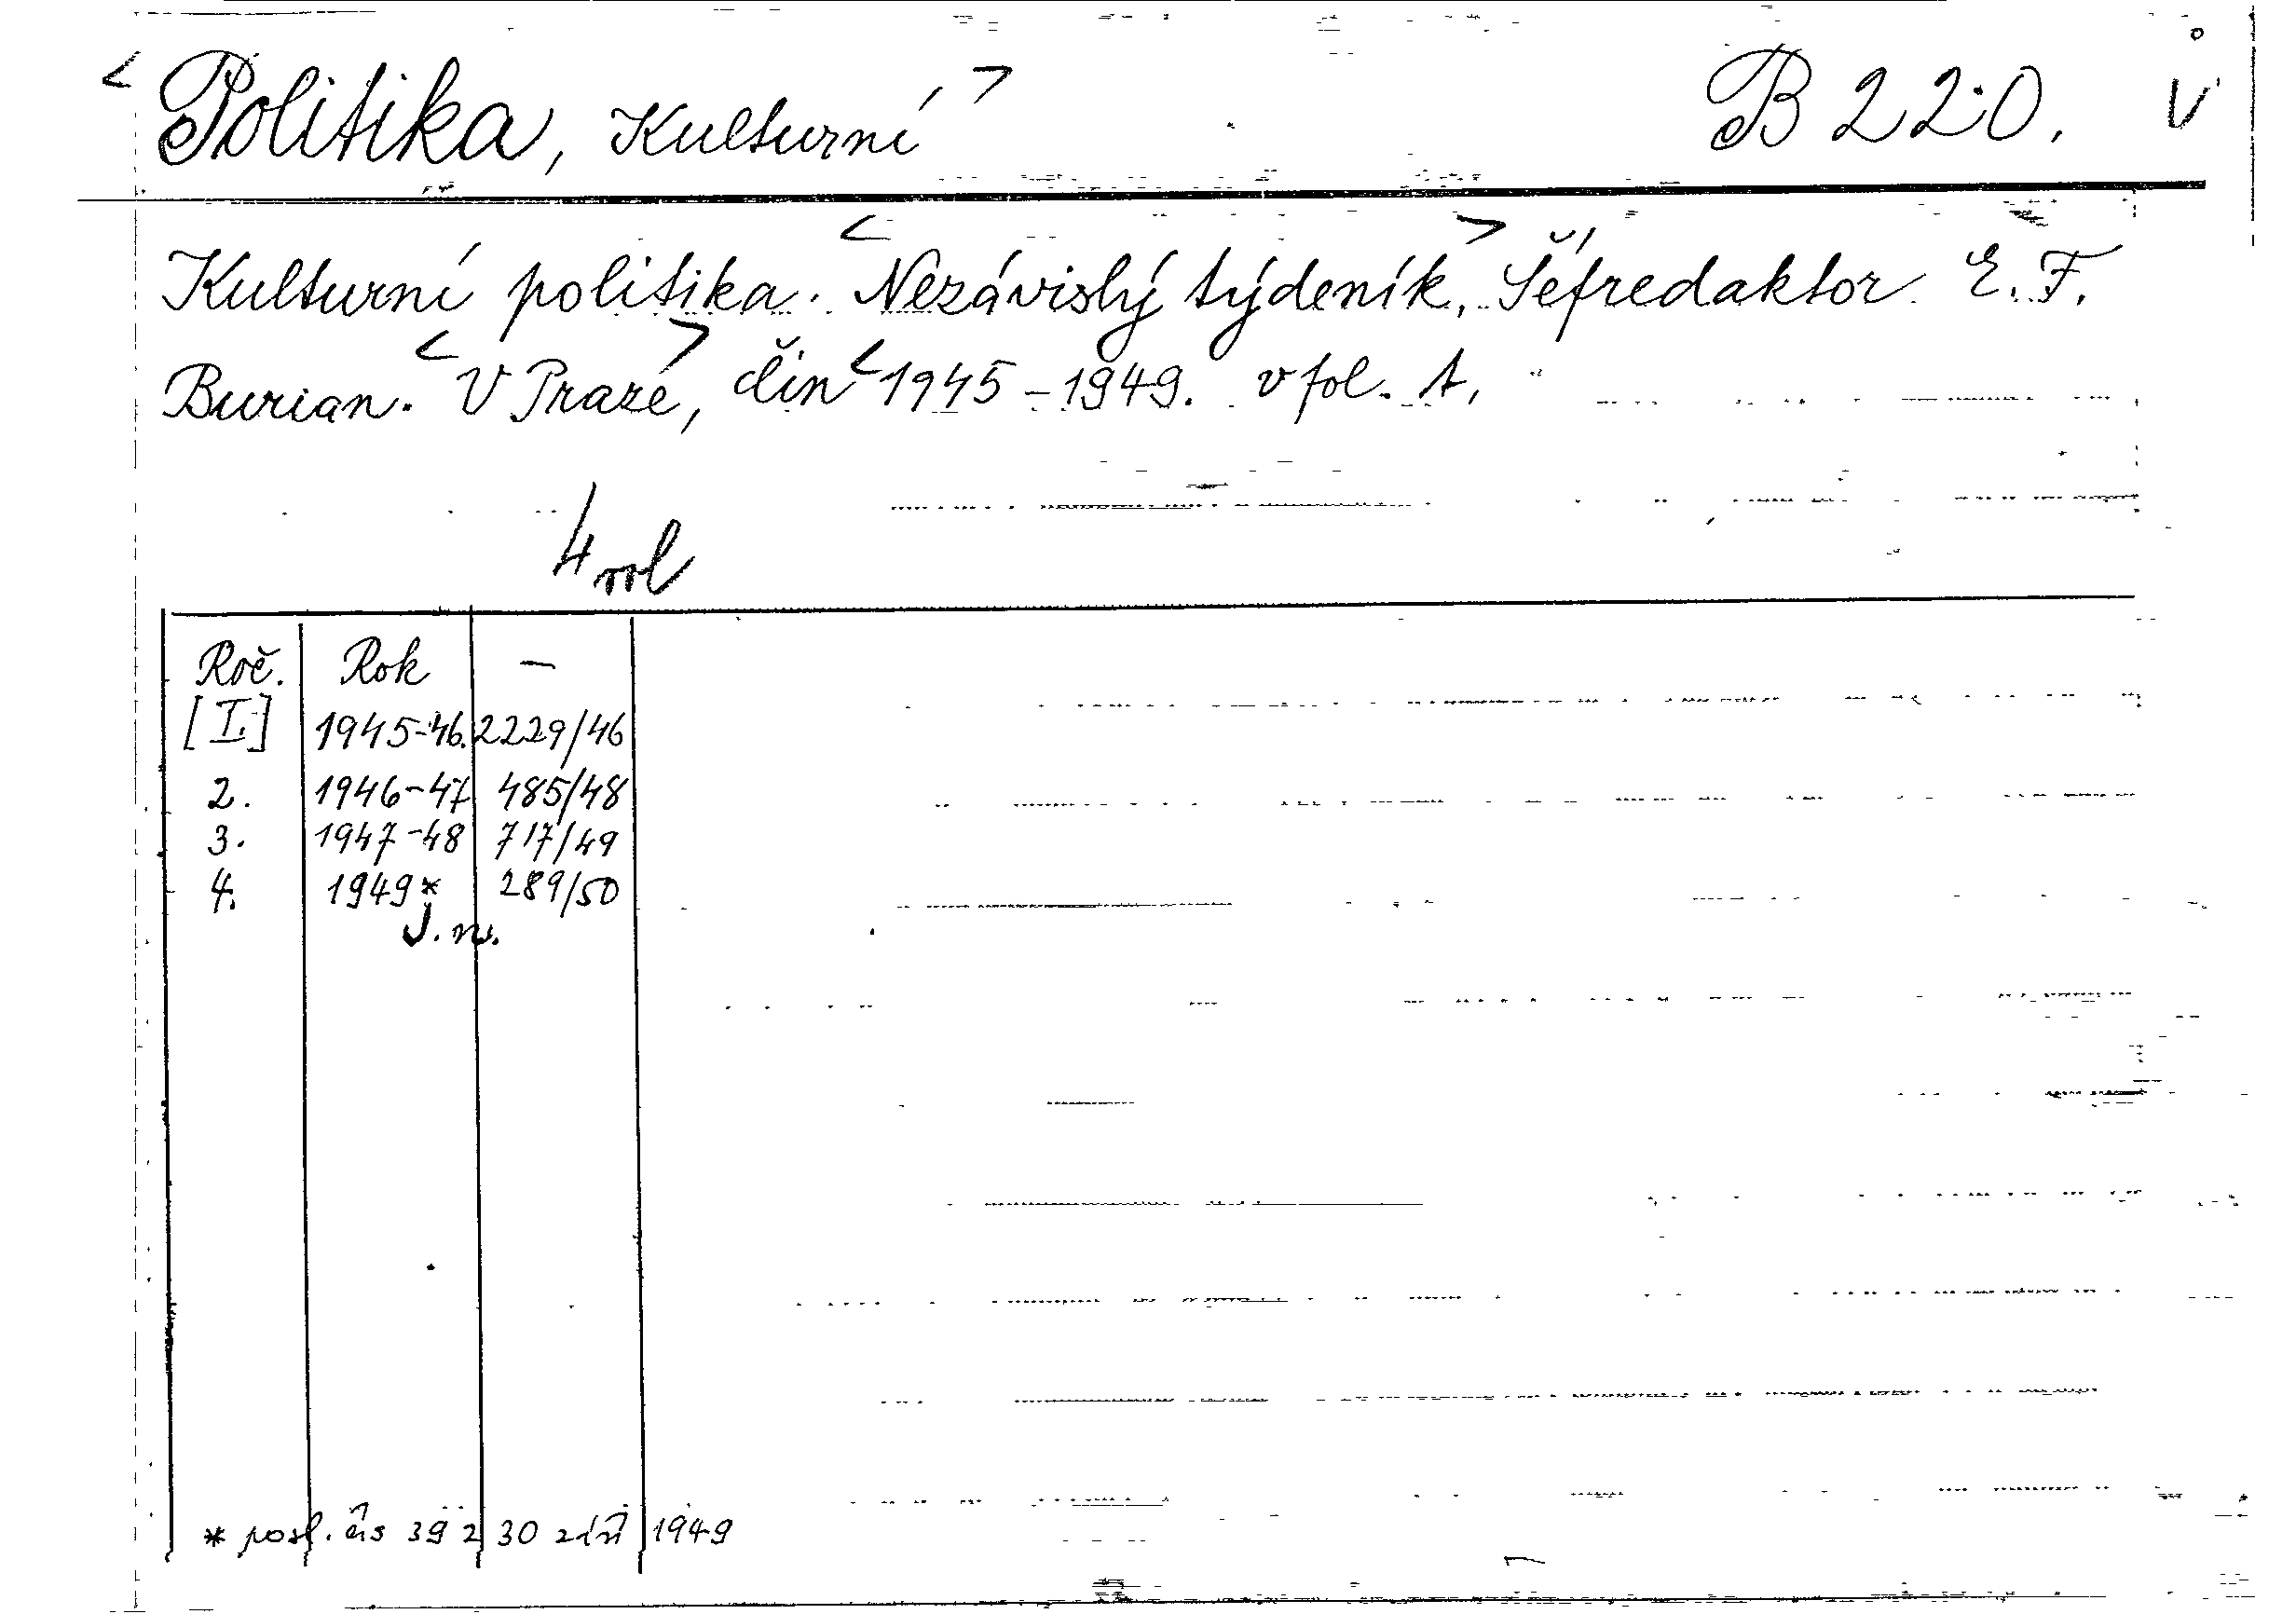 < Politika, Kulturní > B 220. V
Kulturní politika. < Nezávislý týdeník, > Šéfredaktor E. F.
Burian. < V Praze >, Čin < 1945-1949. v fol. A,
4
Roč. Rok —
[I.] 1945-46. 2229/46
2. 1946-47 485/48
3. 1947-48 717/49
4. 1949* 289/50
J. n.
* posl. čís 39 z 30 září 1949